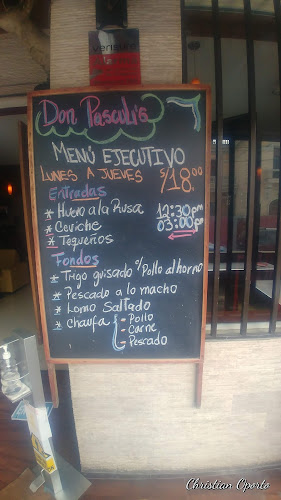 Don Pasculi's
MENÚ EJECUTIVO
LUNES A JUEVES S/18.00
Entradas
* Huevo a la Rusa 12:30pm
* Ceviche 03:00pm
* Tequeños
Fondos
* Trigo guisado c/Pollo al horno
* Pescado a lo macho
* Lomo Saltado
* Chaufa - Pollo
- Carne
- Pescado
Christian Oporto